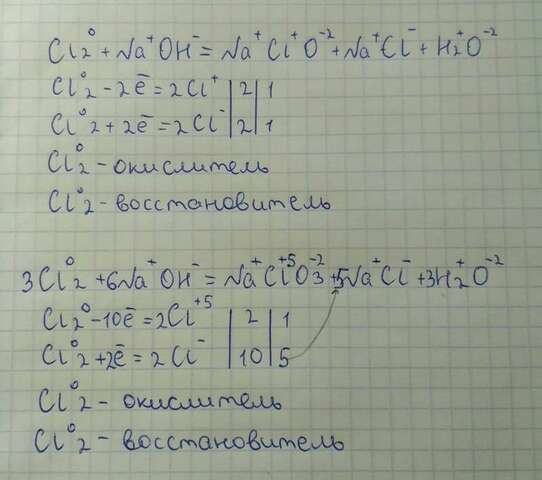 Cl₂⁰ + Na⁺OH⁻ = Na⁺Cl⁺O⁻² + Na⁺Cl⁻ + H₂⁺O⁻²
Cl₂⁰ - 2ē = 2Cl⁺ | 2 | 1
Cl₂⁰ + 2ē = 2Cl⁻ | 2 | 1
Cl₂⁰ - окислитель
Cl₂⁰ - восстановитель
3Cl₂⁰ + 6Na⁺OH⁻ = Na⁺Cl⁺⁵O₃⁻² + 5Na⁺Cl⁻ + 3H₂⁺O⁻²
Cl₂⁰ - 10ē = 2Cl⁺⁵ | 2 | 1
Cl₂⁰ + 2ē = 2Cl⁻ | 10 | 5
Cl₂⁰ - окислитель
Cl₂⁰ - восстановитель